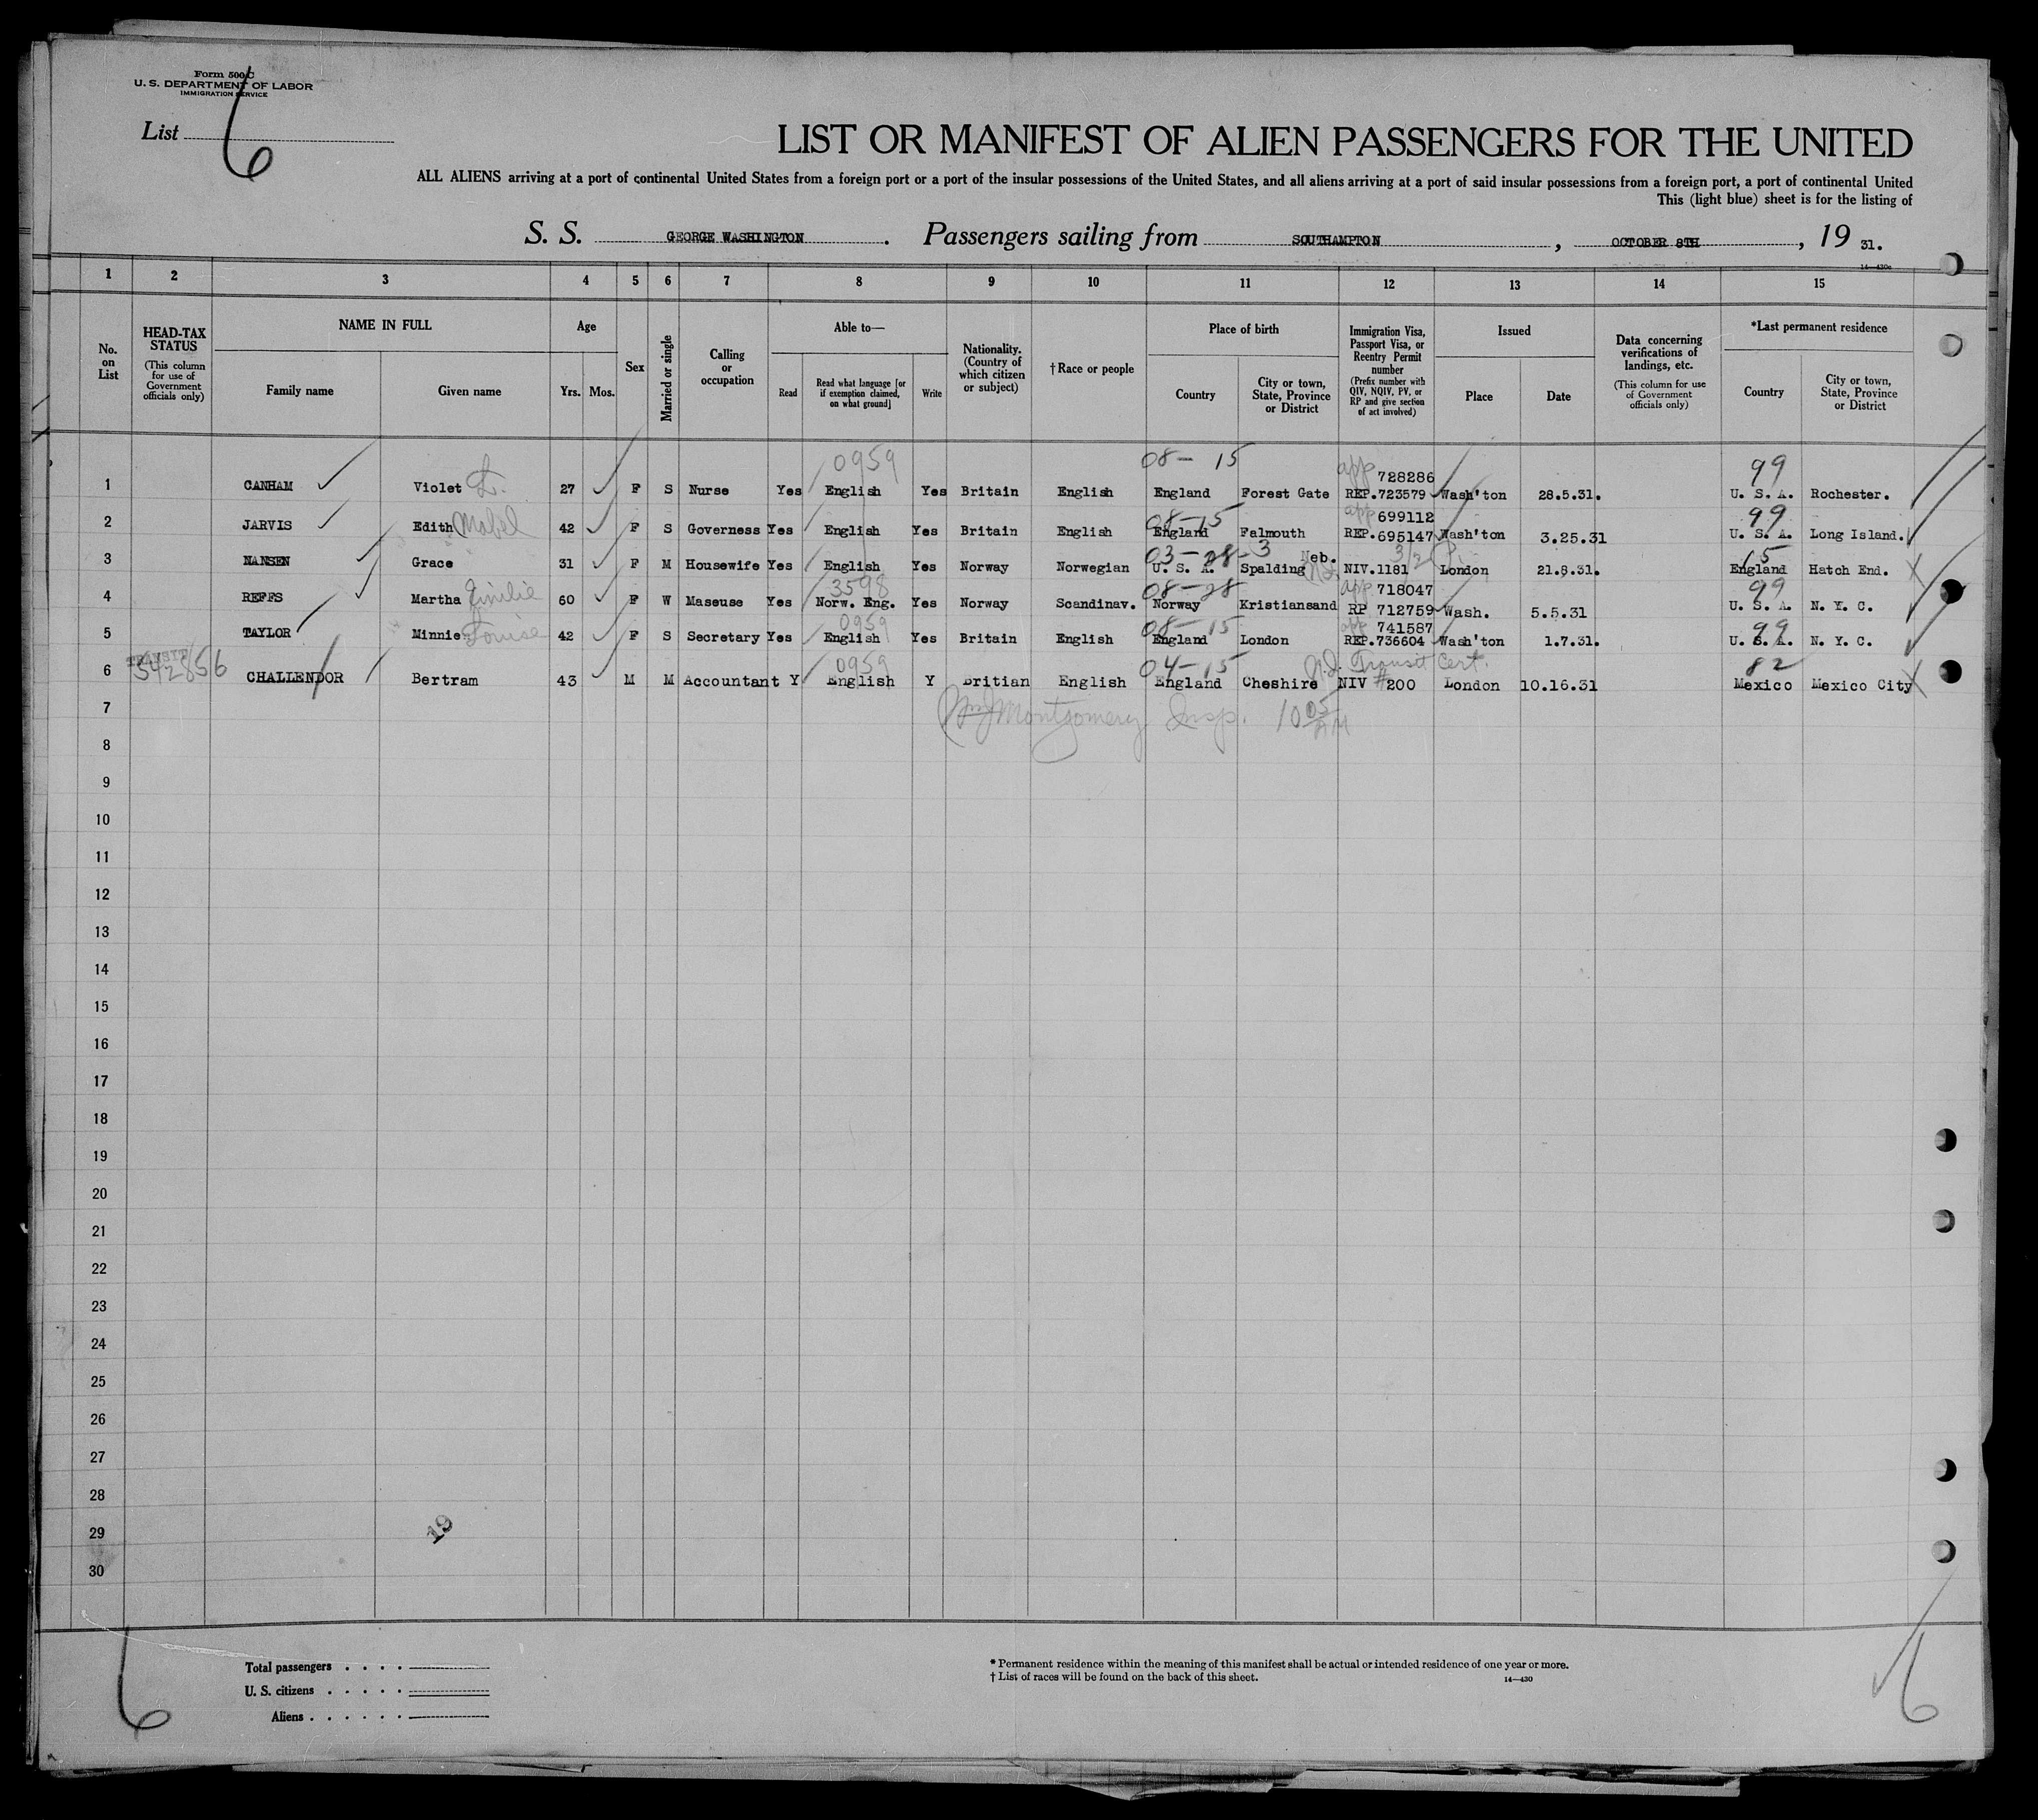 Form 500 C
U. S. DEPARTMENT OF LABOR
IMMIGRATION SERVICE
List 6
LIST OR MANIFEST OF ALIEN PASSENGERS FOR THE UNITED
ALL ALIENS arriving at a port of continental United States from a foreign port or a port of the insular possessions of the United States, and all aliens arriving at a port of said insular possessions from a foreign port, a port of continental United
This (light blue) sheet is for the listing of
S. S. GEORGE WASHINGTON . Passengers sailing from SOUTHAMPTON , OCTOBER 8TH , 19 31.
14—430c
1 2 3 4 5 6 7 8 9 10 11 12 13 14 15
No. on List
HEAD-TAX STATUS (This column for use of Government officials only)
NAME IN FULL
Family name Given name
Age
Yrs. Mos.
Sex
Married or single
Calling or occupation
Able to—
Read Read what language [or if exemption claimed, on what ground] Write
Nationality. (Country of which citizen or subject)
†Race or people
Place of birth
Country City or town, State, Province or District
Immigration Visa, Passport Visa, or Reentry Permit number (Prefix number with QIV, NQIV, PV, or RP and give section of act involved)
Issued
Place Date
Data concerning verifications of landings, etc. (This column for use of Government officials only)
*Last permanent residence
Country City or town, State, Province or District
0959 08-15 app 728286 99
1 CANHAM Violet 27 F S Nurse Yes English Yes Britain English England Forest Gate REP.723579 Wash'ton 28.5.31. U. S. A. Rochester.
08-15 app 699112 99
2 JARVIS Edith Mabel 42 F S Governess Yes English Yes Britain English England Falmouth REP.695147 Wash'ton 3.25.31 U. S. A. Long Island.
03-28-3 Neb. 3/2 15
3 NANSEN Grace 31 F M Housewife Yes English Yes Norway Norwegian U. S. A. Spalding NIV.1181 London 21.8.31. England Hatch End.
3598 08-28 app 718047 99
4 REFFS Martha Emilie 60 F W Maseuse Yes Norw. Eng. Yes Norway Scandinav. Norway Kristiansand RP 712759 Wash. 5.5.31 U. S. A. N. Y. C.
0959 08-15 app 741587 99
5 TAYLOR Minnie Louise 42 F S Secretary Yes English Yes Britain English England London REP.736604 Wash'ton 1.7.31. U. S. A. N. Y. C.
TRANSIT 542856 0959 04-15 Transit Cert. 82
6 CHALLENDOR Bertram 43 M M Accountant Y English Y Britian English England Cheshire NIV #200 London 10.16.31 Mexico Mexico City
7 Montgomery Insp. 10 05
8
9
10
11
12
13
14
15
16
17
18
19
20
21
22
23
24
25
26
27
28
29
30
19
6
Total passengers
U. S. citizens
Aliens
* Permanent residence within the meaning of this manifest shall be actual or intended residence of one year or more.
† List of races will be found on the back of this sheet.
14—430
6